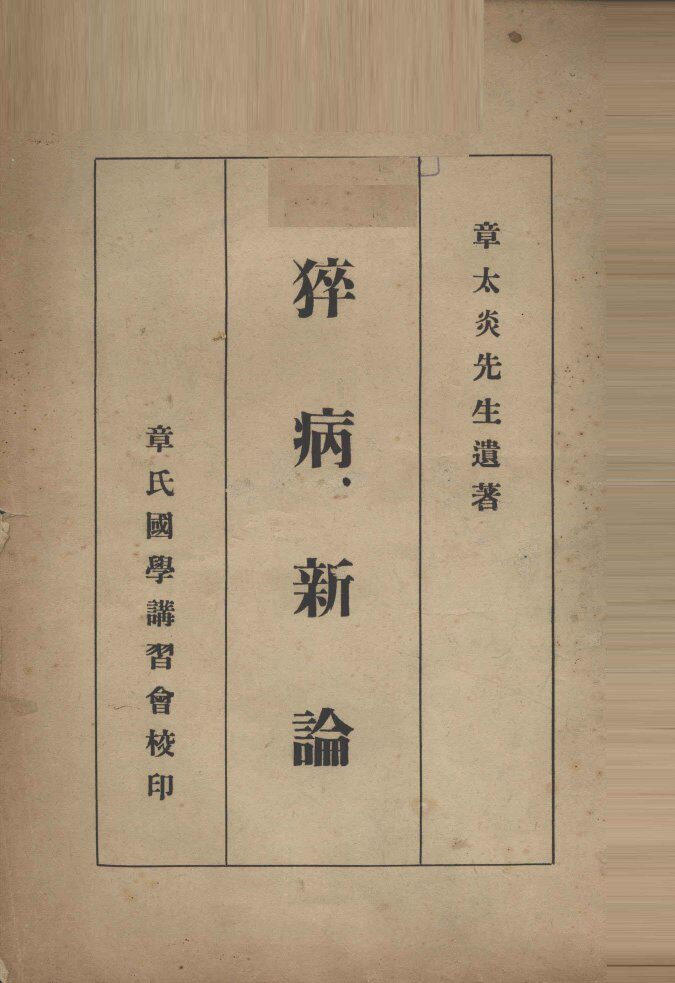 章太炎先生遺著
猝病新論
章氏國學講習會校印